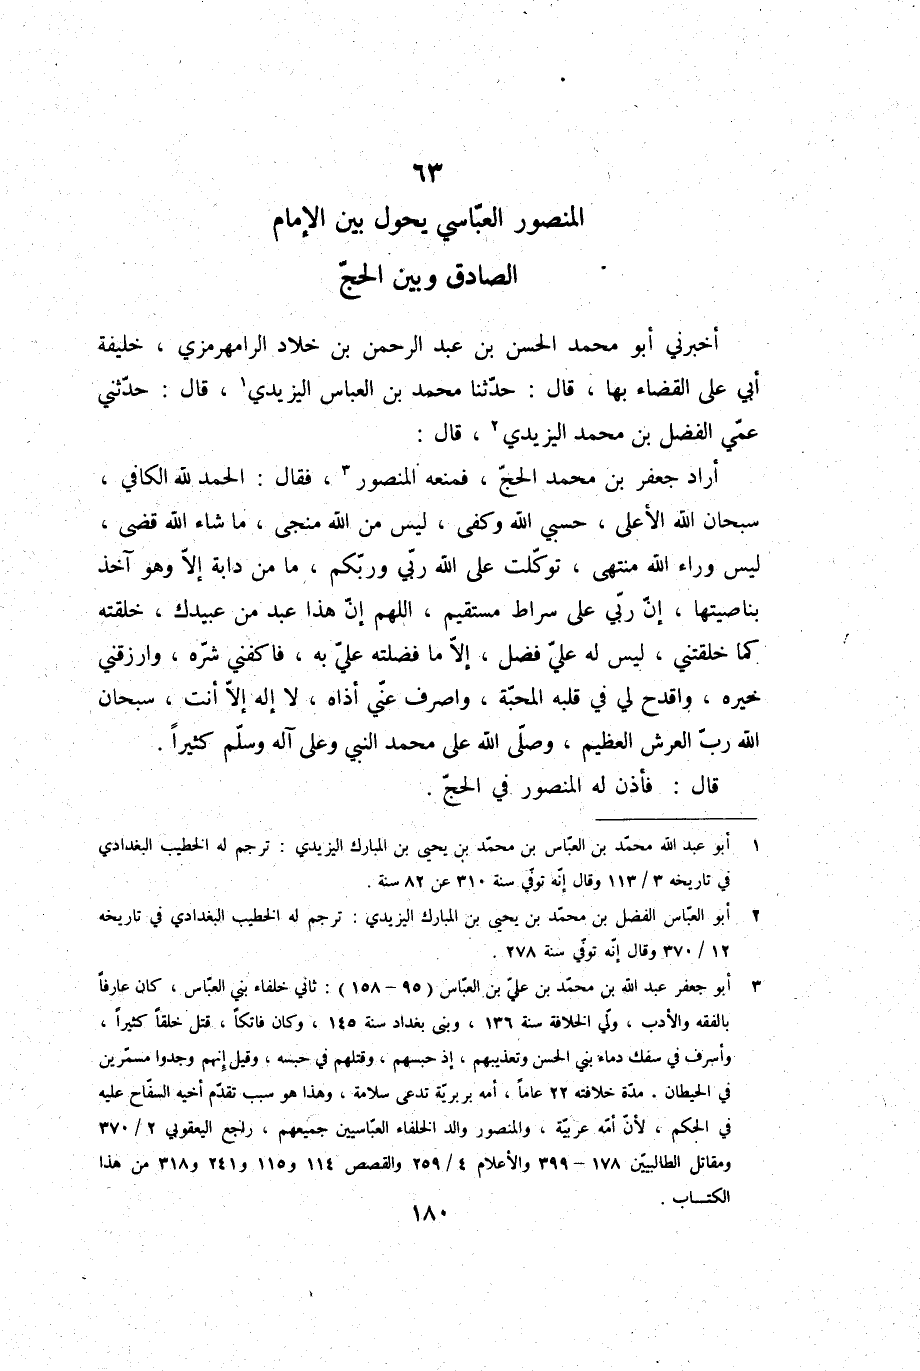 ٦٣
المنصور العبّاسي يحول بين الإمام
الصادق وبين الحجّ
أخبرني أبو محمد الحسن بن عبد الرحمن بن خلاد الرامهرمزي ، خليفة
أبي على القضاء بها ، قال : حدّثنا محمد بن العباس اليزيدي١ ، قال : حدّثني
عمّي الفضل بن محمد اليزيدي٢ ، قال :
أراد جعفر بن محمد الحجّ ، فمنعه المنصور٣ ، فقال : الحمد لله الكافي ،
سبحان الله الأعلى ، حسبي الله وكفى ، ليس من الله منجى ، ما شاء الله قضى ،
ليس وراء الله منتهى ، توكّلت على الله ربّي وربّكم ، ما من دابة إلاّ وهو آخذ
بناصيتها ، إنّ ربّي على سراط مستقيم ، اللهم إنّ هذا عبد من عبيدك ، خلقته
كما خلقتني ، ليس له عليّ فضل ، إلاّ ما فضلته عليّ به ، فاكفني شرّه ، وارزقني
خيره ، واقدح لي في قلبه المحبّة ، واصرف عنّي أذاه ، لا إله إلاّ أنت ، سبحان
الله ربّ العرش العظيم ، وصلّى الله على محمد النبي وعلى آله وسلّم كثيراً .
قال : فأذن له المنصور في الحجّ .
١ أبو عبد الله محمّد بن العبّاس بن محمّد بن يحيى بن المبارك اليزيدي : ترجم له الخطيب البغدادي
في تاريخه ٣ / ١١٣ وقال إنّه توفّي سنة ٣١٠ عن ٨٢ سنة .
٢ أبو العبّاس الفضل بن محمّد بن يحيى بن المبارك اليزيدي : ترجم له الخطيب البغدادي في تاريخه
١٢ / ٣٧٠ وقال إنّه توفّي سنة ٢٧٨ .
٣ أبو جعفر عبد الله بن محمّد بن عليّ بن العبّاس ( ٩٥ - ١٥٨ ) : ثاني خلفاء بني العبّاس ، كان عارفاً
بالفقه والأدب ، ولّي الخلافة سنة ١٣٦ ، وبنى بغداد سنة ١٤٥ ، وكان فاتكاً ، قتل خلقاً كثيراً ،
وأسرف في سفك دماء بني الحسن وتعذيبهم ، إذ حبسهم ، وقتلهم في حبسه ، وقيل إنهم وجدوا مسمّرين
في الحيطان . مدّة خلافته ٢٢ عاماً ، أمه بربريّة تدعى سلامة ، وهذا هو سبب تقدّم أخيه السفّاح عليه
في الحكم ، لأنّ أمّه عربيّة ، والمنصور والد الخلفاء العبّاسيين جميعهم ، راجع اليعقوبي ٢ / ٣٧٠
ومقاتل الطالبيّين ١٧٨ - ٣٩٩ والأعلام ٤ / ٢٥٩ والقصص ١١٤ و١١٥ و٢٤١ و٣١٨ من هذا
الكتــاب .
١٨٠